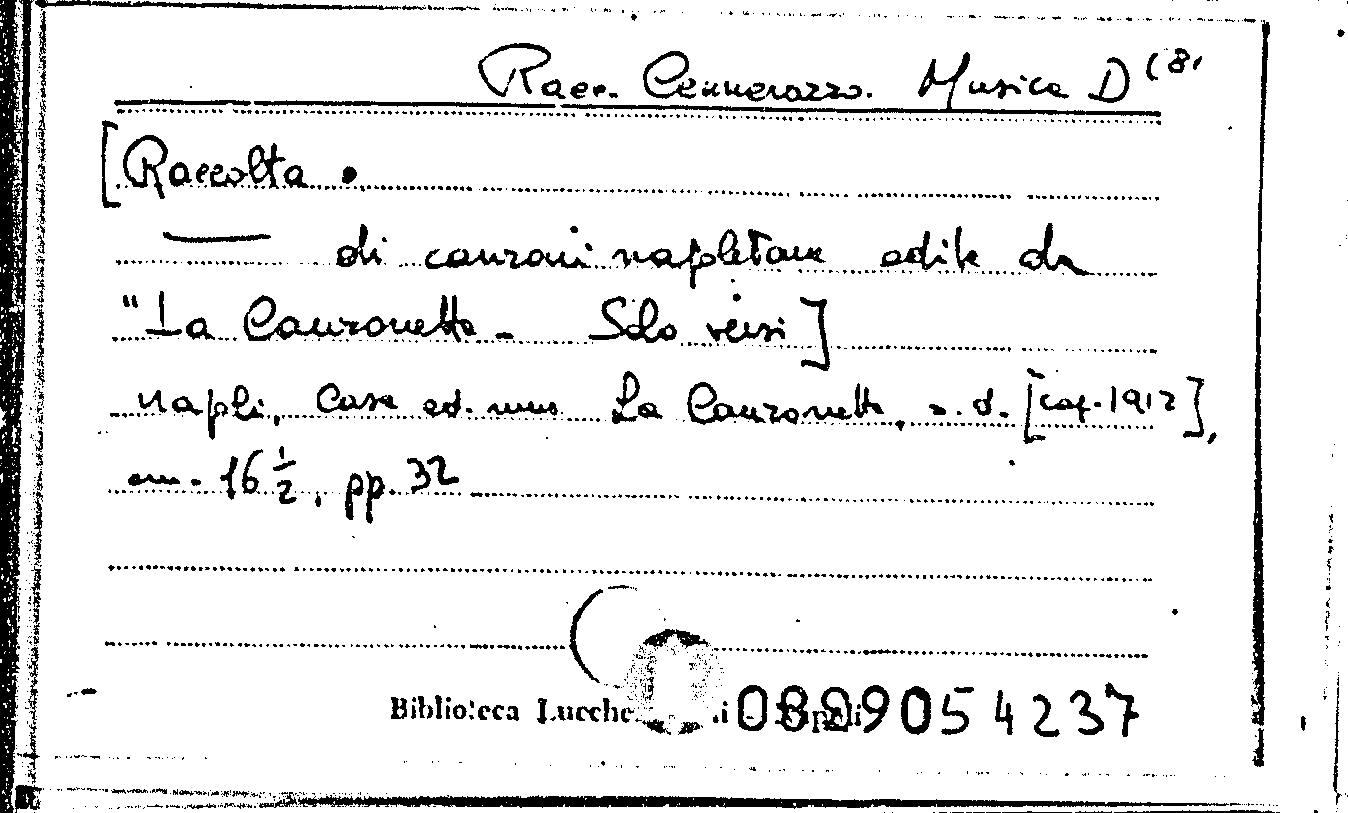 Racc. Cennerazzo. Musica D (8,
[Raccolta.
— di canzoni napoletane edite da
"La Canzonetta - Solo versi]
Napoli, Casa ed. mus La Canzonetta, s. d. [cop. 1912],
cm. 16 1/2, pp. 32
Biblioteca Lucche i - 0899054237